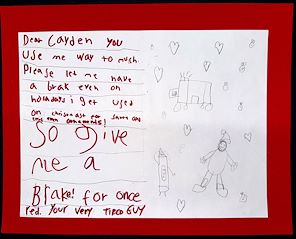 Dear Cayden you
use me way to much.
Please let me have
a brak even on
holadays i get used
on christmast for santa and
so give
me a
Brake! for once
red. Your very tired GUY